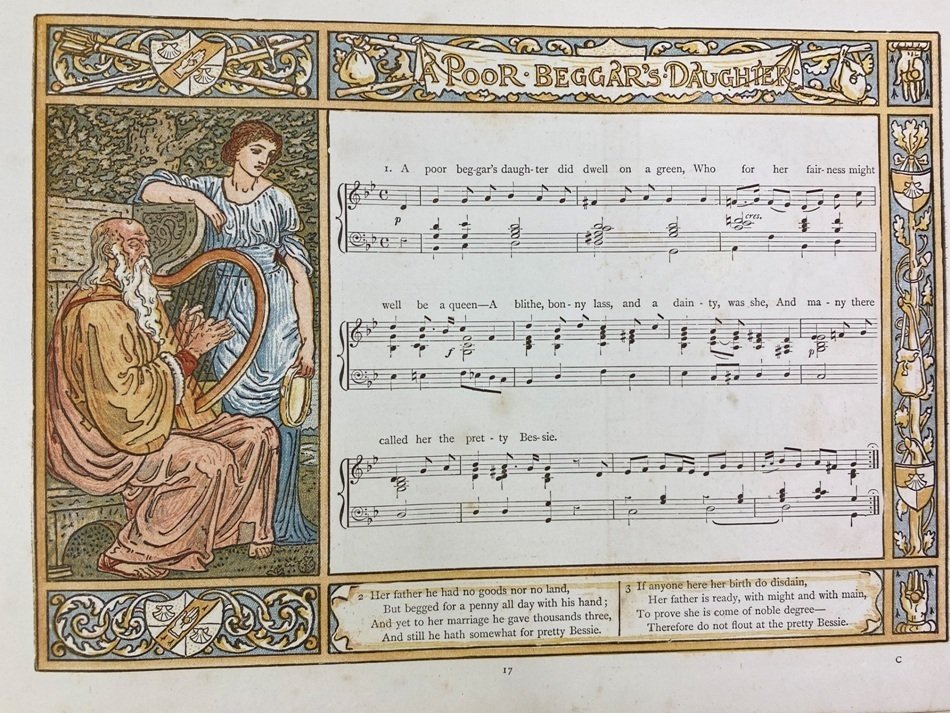 A POOR · BEGGAR'S · DAUGHTER ·
1. A poor beg-gar's daugh-ter did dwell on a green, Who for her fair-ness might
p
cres.
well be a queen—A blithe, bon-ny lass, and a dain-ty, was she, And ma-ny there
f
p
called her the pret-ty Bes-sie.
2 Her father he had no goods nor no land,
But begged for a penny all day with his hand;
And yet to her marriage he gave thousands three,
And still he hath somewhat for pretty Bessie.
3 If anyone here her birth do disdain,
Her father is ready, with might and with main,
To prove she is come of noble degree—
Therefore do not flout at the pretty Bessie.
17
C